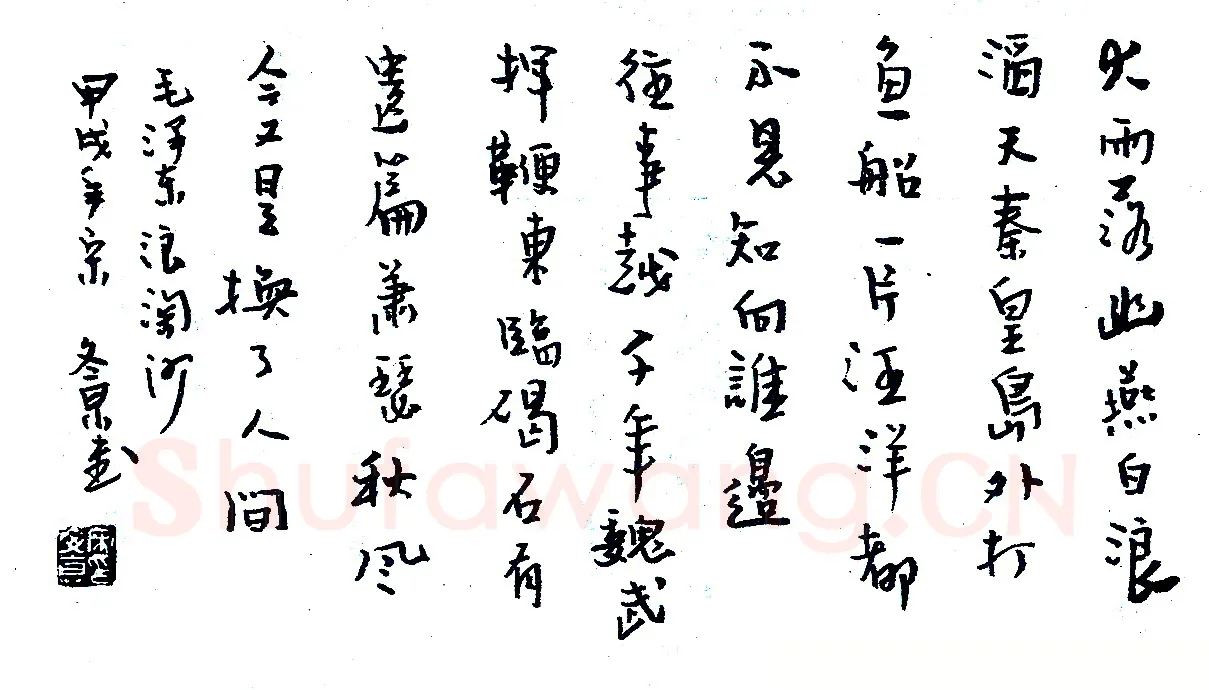 大雨落幽燕白浪
滔天秦皇島外打
魚船一片汪洋都
不見知向誰邊
往事越千年魏武
揮鞭東臨碣石有
遺篇蕭瑟秋風
今又是換了人間
毛泽东浪淘沙
甲戌年宗
Shufawang.CN